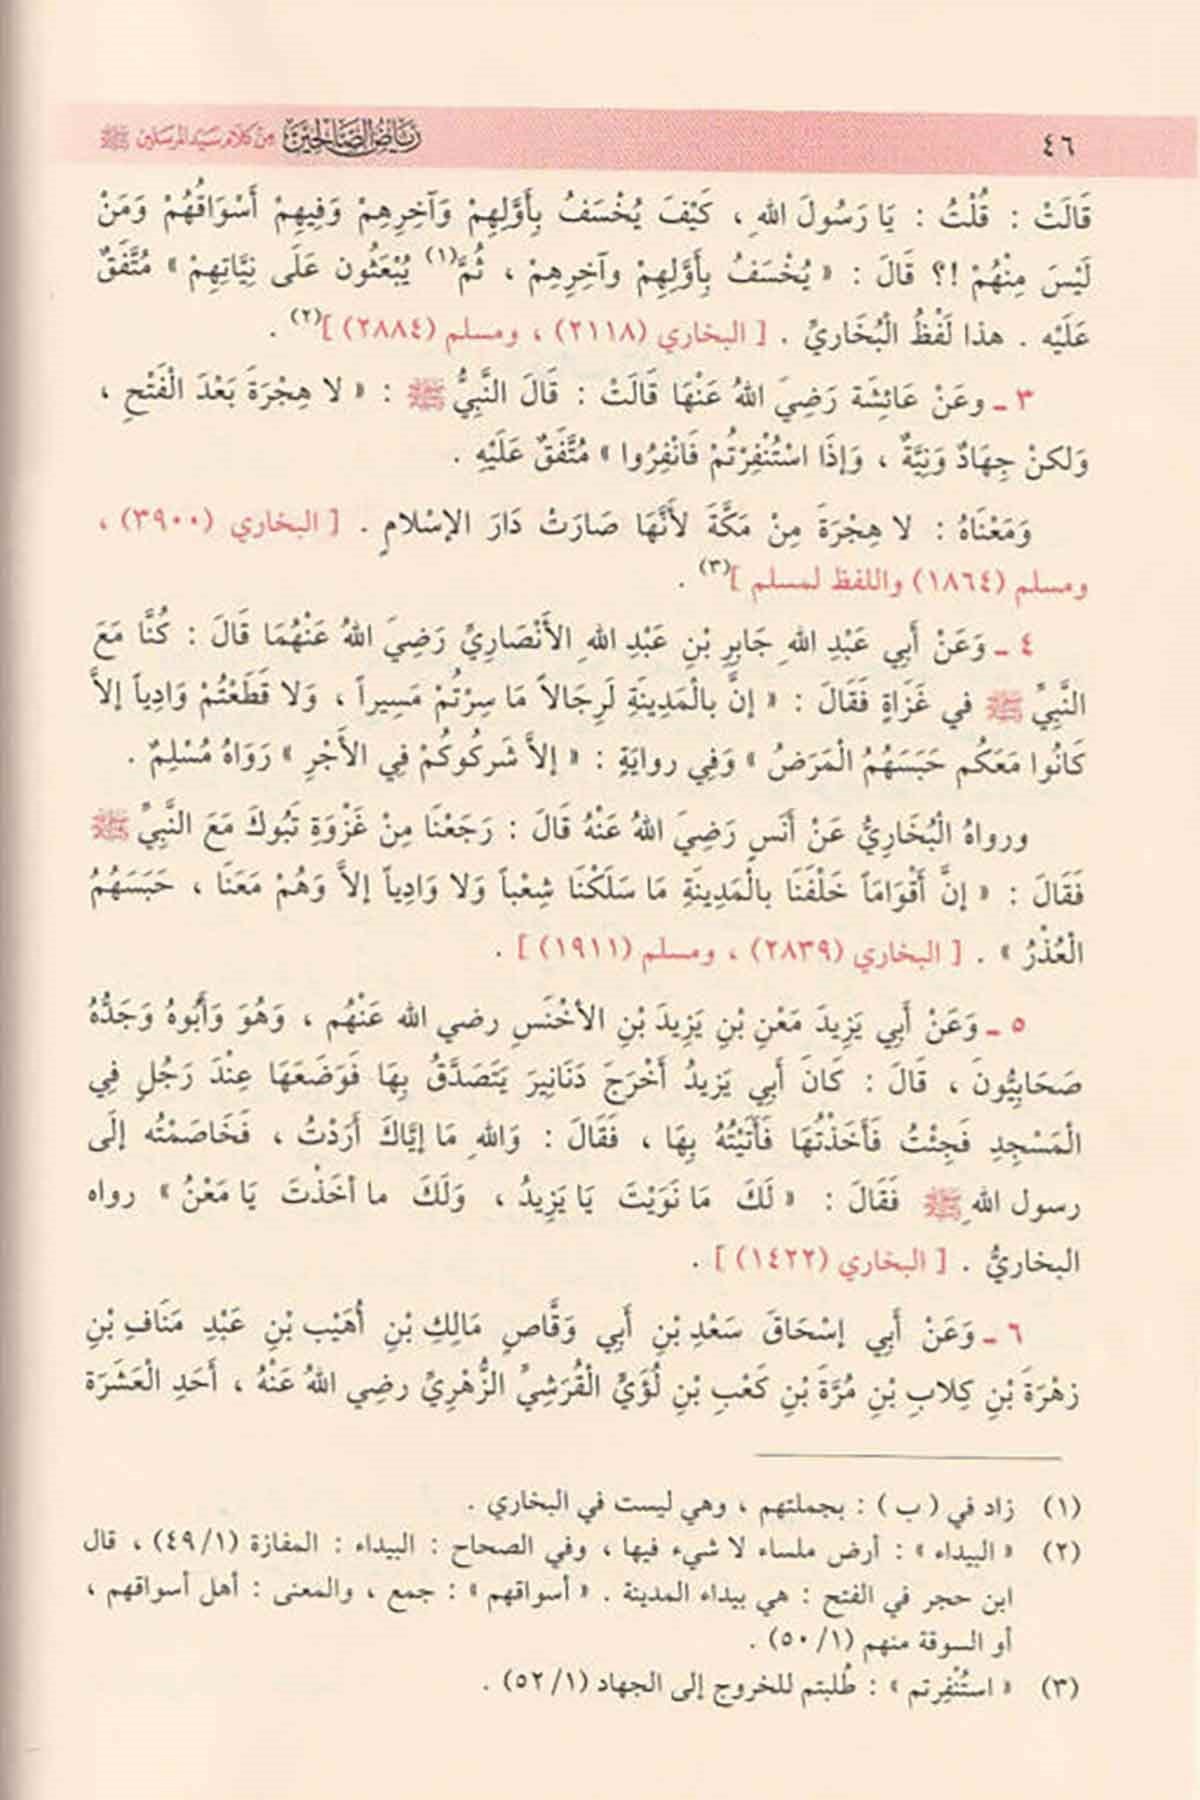 ٤٦ رياض الصالحين من كلام سيد المرسلين ﷺ
قَالَتْ : قُلْتُ : يَا رَسُولَ اللهِ ، كَيْفَ يُخْسَفُ بِأَوَّلِهِمْ وَآخِرِهِمْ وَفِيهِمْ أَسْوَاقُهُمْ وَمَنْ
لَيْسَ مِنْهُمْ !؟ قَالَ : « يُخْسَفُ بِأَوَّلِهِمْ وآخِرِهِمْ ، ثُمَّ(١) يُبْعَثُون عَلَى نِيَّاتِهِمْ » مُتَّفَقٌ
عَلَيْه . هذا لَفْظُ الْبُخَاريِّ . [ البخاري (٢١١٨) ، ومسلم (٢٨٨٤) ](٢) .
٣ ـ وعَنْ عَائِشَة رَضِيَ اللهُ عَنْهَا قَالَتْ : قَالَ النَّبِيُّ ﷺ : « لا هِجْرَةَ بَعْدَ الْفَتْحِ ،
وَلكنْ جِهَادٌ وَنِيَّةٌ ، وَإذَا اسْتُنْفِرْتُمْ فَانْفِرُوا » مُتَّفَقٌ عَلَيْهِ .
وَمَعْنَاهُ : لا هِجْرَةَ مِنْ مَكَّةَ لأَنَّهَا صَارَتْ دَارَ الإسْلامِ . [ البخاري (٣٩٠٠) ،
ومسلم (١٨٦٤) واللفظ لمسلم ](٣) .
٤ ـ وَعَنْ أَبِي عَبْدِ اللهِ جَابِرِ بْنِ عَبْدِ اللهِ الأَنْصَارِيِّ رَضِيَ اللهُ عَنْهُمَا قَالَ : كُنَّا مَعَ
النَّبِيِّ ﷺ في غَزَاةٍ فَقَالَ : « إنَّ بالْمَدِينَةِ لَرِجَالاً مَا سِرْتُمْ مَسِيراً ، وَلا قَطَعْتُمْ وَادِياً إلاَّ
كَانُوا مَعَكُم حَبَسَهُمُ الْمَرَضُ » وَفِي روايَةِ : « إلاَّ شَركُوكُمْ فِي الأَجْرِ » رَوَاهُ مُسْلِمٌ .
ورواهُ الْبُخَارِيُّ عَنْ أَنَسٍ رَضِيَ اللهُ عَنْهُ قَالَ : رَجَعْنَا مِنْ غَزْوَةِ تَبُوكَ مَعَ النَّبِيِّ ﷺ
فَقَالَ : « إنَّ أَقْوَامَاً خَلْفَنَا بالْمَدِينَةِ مَا سَلَكْنَا شِعْباً وَلا وَادِياً إلاَّ وَهُمْ مَعَنَا ، حَبَسَهُمُ
الْعُذْرُ » . [ البخاري (٢٨٣٩) ، ومسلم (١٩١١) ] .
٥ ـ وَعَنْ أَبِي يَزِيدَ مَعْنِ بْنِ يَزِيدَ بْنِ الأخْنَسِ رضي الله عَنْهُم ، وَهُوَ وَأَبُوهُ وَجَدُّهُ
صَحَابِيُّونَ ، قَالَ : كَانَ أَبِي يَزيدُ أَخْرَجَ دَنَانِيرَ يَتَصَدَّقُ بِهَا فَوَضَعَهَا عِنْدَ رَجُلٍ فِي
الْمَسْجِدِ فَجِئْتُ فَأَخَذْتُهَا فَأَتَيْتُهُ بِهَا ، فَقَالَ : وَاللهِ مَا إيَّاكَ أَرَدْتُ ، فَخَاصَمْتُه إلَى
رسول اللهِ ﷺ فَقَالَ : « لَكَ مَا نَوَيْتَ يَا يَزِيدُ ، وَلَكَ ما أخَذْتَ يَا مَعْنُ » رواه
البخاريُّ . [ البخاري (١٤٢٢) ] .
٦ ـ وَعَنْ أَبِي إسْحَاقَ سَعْدِ بْنِ أَبِي وَقَّاصٍ مَالِكِ بْنِ أُهَيْب بْنِ عَبْدِ مَنَافِ بْنِ
زهْرَةَ بْنِ كِلابِ بْنِ مُرَّةَ بْنِ كَعْبِ بْنِ لُؤَيِّ الْقُرَشِيِّ الزُّهْرِيِّ رضِي اللهُ عَنْهُ ، أَحَدِ الْعَشَرَة
(١) زاد في ( ب ) : بجملتهم ، وهي ليست في البخاري .
(٢) « البيداء » : أرض ملساء لا شيء فيها ، وفي الصحاح : البيداء : المفازة (٤٩/١) ، قال
ابن حجر في الفتح : هي بيداء المدينة . « أسواقهم » : جمع ، والمعنى : أهل أسواقهم ،
أو السوقة منهم (٥٠/١) .
(٣) « استُنْفِرتم » : طُلبتم للخروج إلى الجهاد (٥٢/١) .